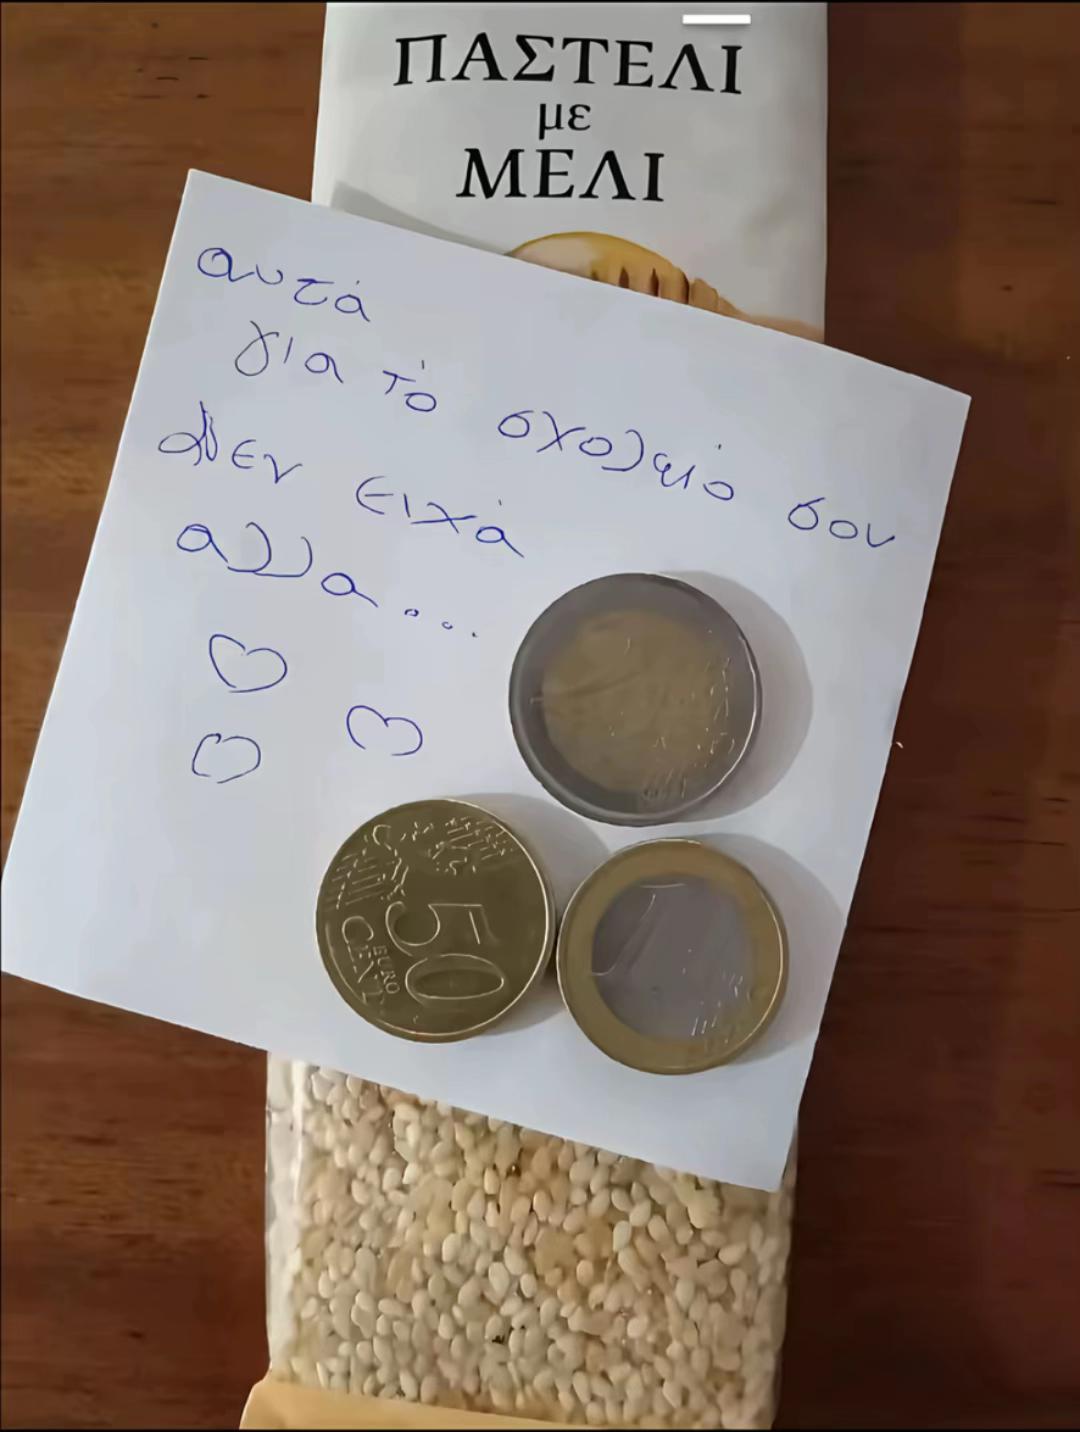 ΠΑΣΤΕΛΙ
με
ΜΕΛΙ
αυτά
για τό σχολείο σου
Δεν ειχά
αλλα...
50
EURO
CENT